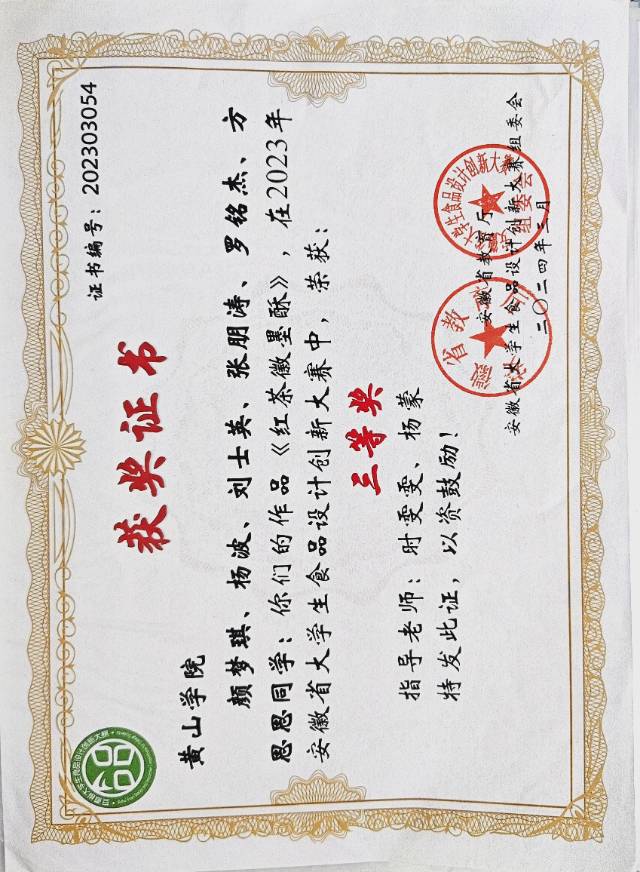 证书编号：202303054
获奖证书
黄山学院
颜梦琪、杨波、刘士英、张朋涛、罗铭杰、方
思思同学：你们的作品《红茶徽墨酥》，在2023年
安徽省大学生食品设计创新大赛中，荣获：
三等奖
指导老师：时雯雯、杨蒙
特发此证，以资鼓励！
安徽省教育厅
安徽省大学生食品设计创新大赛组委会
二〇二四年三月